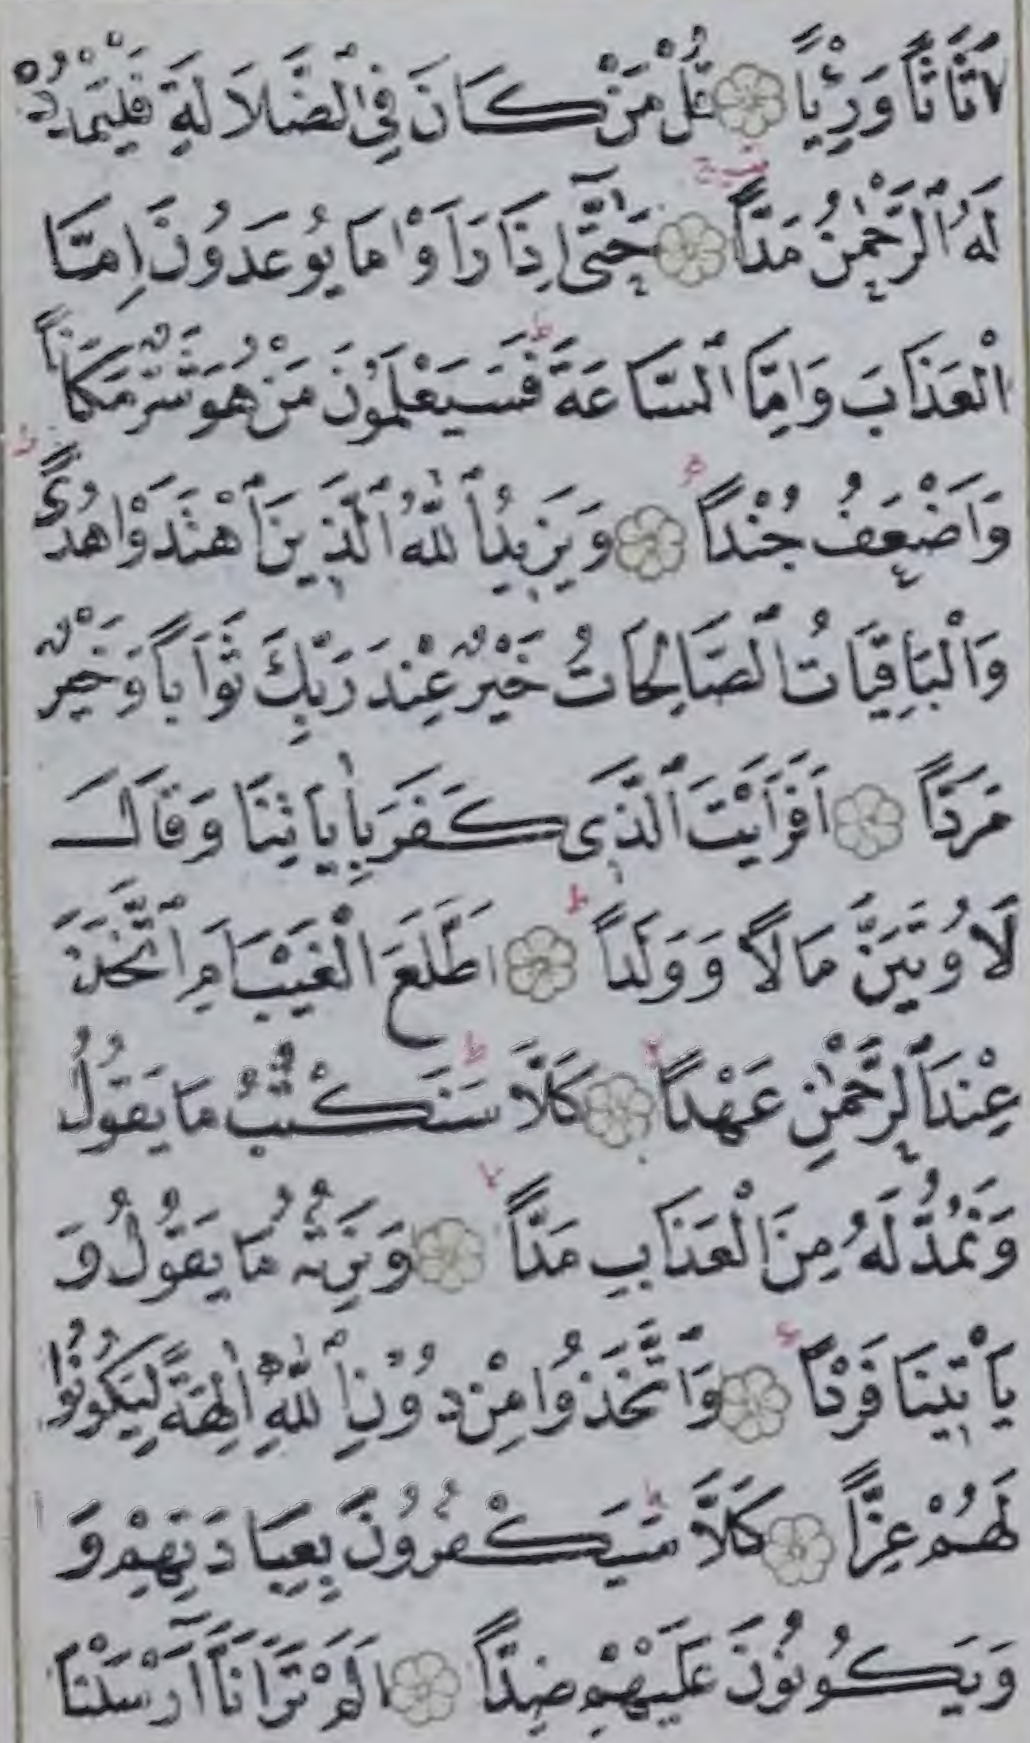 اَثَاثاً وَرِءْياً ۝ قُلْ مَنْ كَانَ فِي الضَّلَالَةِ فَلْيَمْدُدْ
لَهُ الرَّحْمٰنُ مَدًّا ۝ حَتّٰٓى اِذَا رَاَوْا مَا يُوعَدُونَ اِمَّا
الْعَذَابَ وَاِمَّا السَّاعَةَ ط فَسَيَعْلَمُونَ مَنْ هُوَ شَرٌّ مَكَاناً
وَاَضْعَفُ جُنْداً ۝ وَيَزِيدُ اللّٰهُ الَّذِينَ اهْتَدَوْا هُدًى ط
وَالْبَاقِيَاتُ الصَّالِحَاتُ خَيْرٌ عِنْدَ رَبِّكَ ثَوَاباً وَخَيْرٌ
مَرَدًّا ۝ اَفَرَاَيْتَ الَّذِي كَفَرَ بِاٰيَاتِنَا وَقَالَ
لَاُوتَيَنَّ مَالاً وَوَلَداً ط ۝ اَطَّلَعَ الْغَيْبَ اَمِ اتَّخَذَ
عِنْدَ الرَّحْمٰنِ عَهْداً ۝ كَلَّا ط سَنَكْتُبُ مَا يَقُولُ
وَنَمُدُّ لَهُ مِنَ الْعَذَابِ مَدًّا ۝ وَنَرِثُهُ مَا يَقُولُ وَ
يَأْتِينَا فَرْداً ۝ وَاتَّخَذُوا مِنْ دُونِ اللّٰهِ اٰلِهَةً لِيَكُونُوا
لَهُمْ عِزًّا ۝ كَلَّا ط سَيَكْفُرُونَ بِعِبَادَتِهِمْ وَ
وَيَكُونُونَ عَلَيْهِمْ ضِدًّا ۝ اَلَمْ تَرَ اَنَّٓا اَرْسَلْنَا